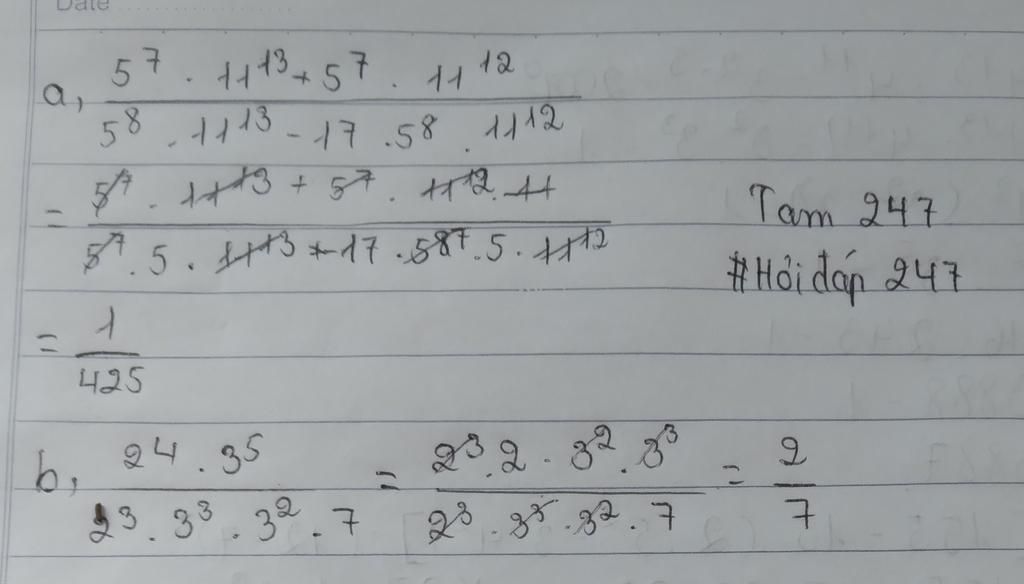 Date
a, 5^7 . 11^13 + 5^7 . 11^12
5^8 . 11^13 - 17 . 5^8 . 11^12
= 5^7 . 11^13 + 5^7 . 11^12 . 11
5^7 . 5 . 11^13 + -17 . 5^87 . 5 . 11^12
Tam 247
#Hỏi đáp 247
= 1
425
b, 2^4 . 3^5
2^3 . 3^3 . 3^2 . 7
= 2^3 . 2 . 3^2 . 3^3
2^3 . 3^3 . 3^2 . 7
= 2
7